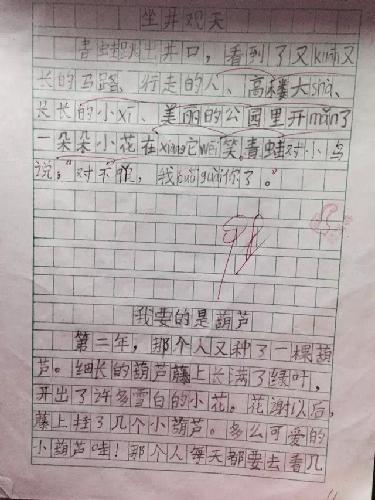 坐井观天
青蛙跳出井口，看到了又kuān又
长的马路、行走的人、高楼大shà、
长长的小xī、美丽的公园里开mǎn了
一朵朵小花在xiàng它wēi笑。青蛙对小鸟
说："对不起，我cuò guài你了。"
我要的是葫芦
第二年，那个人又种了一棵葫
芦。细长的葫芦藤上长满了绿叶，
开出了许多雪白的小花。花谢以后，
藤上挂了几个小葫芦。多么可爱的
小葫芦哇！那个人每天都要去看几